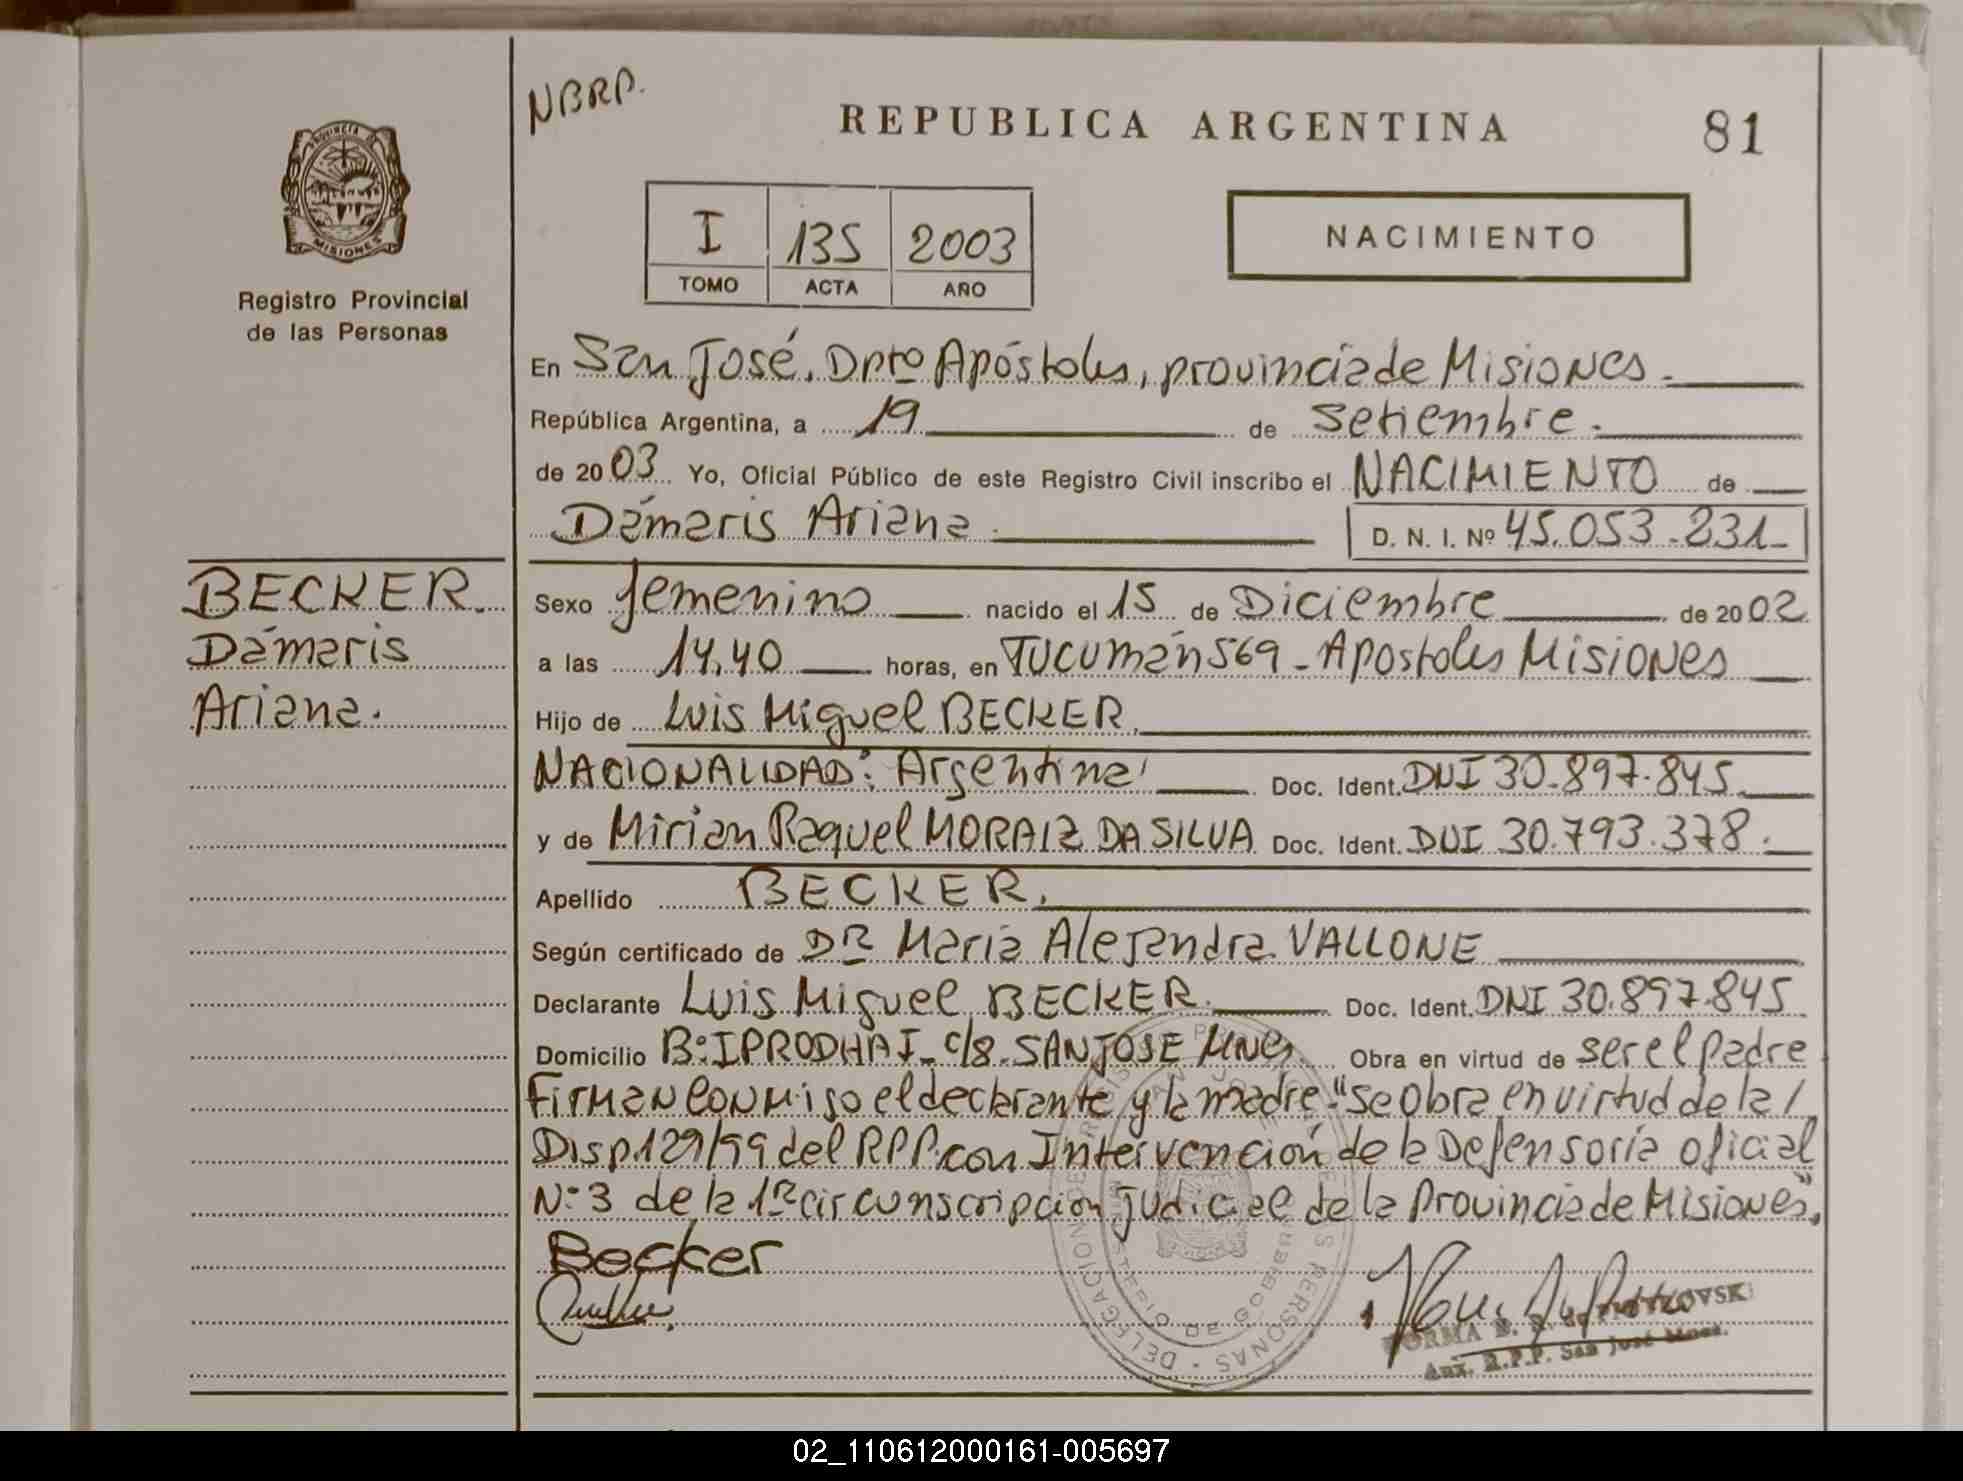 NBRP.
REPUBLICA ARGENTINA
81
PROVINCIA DE
MISIONES
Registro Provincial
de las Personas
I 135 2003
TOMO ACTA AÑO
NACIMIENTO
En San José, Dpto Apóstoles, provincia de Misiones.
República Argentina, a 19 de Setiembre.
de 2003 Yo, Oficial Público de este Registro Civil inscribo el NACIMIENTO de
Dámaris Ariana. D. N. I. Nº 45.053.231
BECKER.
Dámaris
Ariana.
Sexo femenino nacido el 15 de Diciembre de 2002
a las 14,40 horas, en Tucumán 569 - Apostoles Misiones
Hijo de Luis Miguel BECKER.
NACIONALIDAD: Argentina Doc. Ident. DNI 30.897.845.
y de Mirian Raquel MORAIZ DA SILVA Doc. Ident. DNI 30.793.378.
Apellido BECKER.
Según certificado de DRA María Alejandra VALLONE
Declarante Luis Miguel BECKER. Doc. Ident. DNI 30.897.845
Domicilio B: IPRODHA I - C/8. SAN JOSE Mnes Obra en virtud de ser el padre
Firman conmigo el declarante y la madre. "Se obra en virtud de la /
Disp. 129/99 del RPP. con Intervención de la Defensoría oficial
N: 3 de la 1ra circunscripción judicial de la Provincia de Misiones".
Becker
DELEGACION DE REGISTRO PERSONAS
MINISTERIO DE GOBIERNO
NORMA B. R. de PIOTROVSKI
Aux. R.P.P. San José Mnes.
02_110612000161-005697